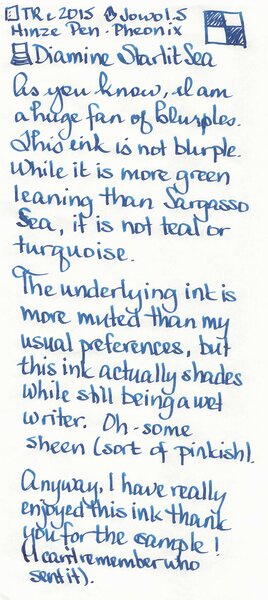 TR c 2015 Jowo 1.5
Hinze Pen - Pheonix
Diamine Starlit Sea
As you know, I am
a huge fan of blurples.
This ink is not blurple.
While it is more green
leaning than Sargasso
Sea, it is not teal or
turquoise.
The underlying ink is
more muted than my
usual preferences, but
this ink actually shades
while still being a wet
writer. Oh - some
sheen (sort of pinkish).
Anyway, I have really
enjoyed this ink thank
you for the sample!
(I can't remember who
sent it).